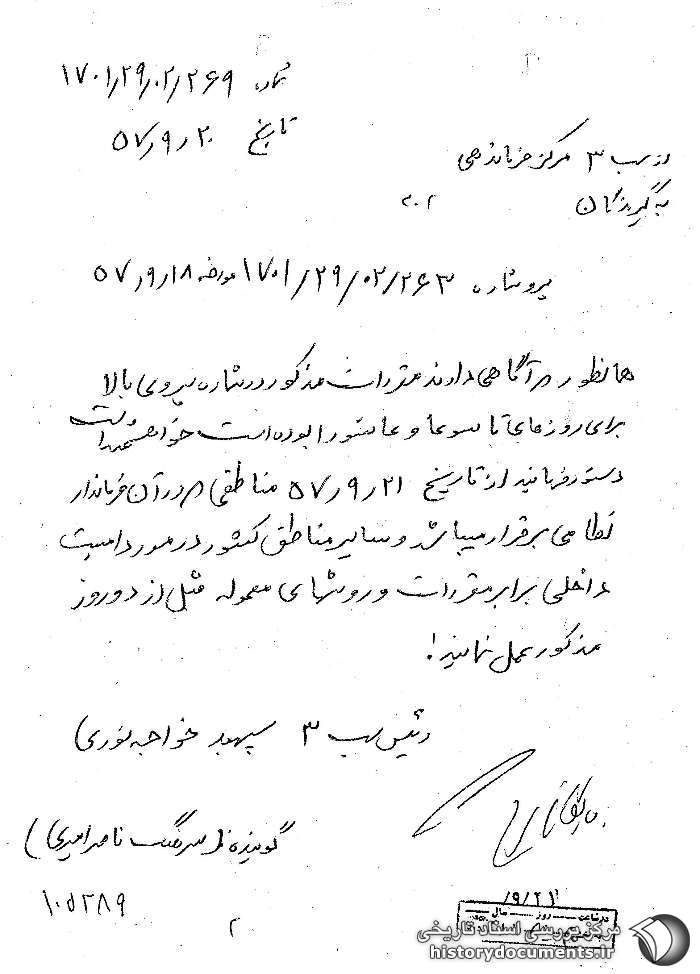 شماره ۱۷۰۱/۲۹/۰۲/۲۶۹
تاریخ ۵۷/۹/۲۰
از سب ۳ مرکز فرماندهی
به گیرندگان
پیرو شماره ۱۷۰۱/۲۹/۰۲/۲۶۳ مورخه ۵۷/۹/۱۸
همانطور که آگاهی دارند مقررات مذکور در شماره پیروی بالا
برای روزهای تاسوعا و عاشورا بوده است خواهشمند است
دستور فرمائید از تاریخ ۵۷/۹/۲۱ مناطقی که در آن فرماندار
نظامی برقرار میباشد و سایر مناطق کشور در مورد امنیت
داخلی برابر مقررات و روشهای معموله قبل از دو روز
مذکور عمل نمایند!
رئیس سب ۳ سپهبد خواجه نوری
گوینده (سرهنگ ناصر امیری)
۱۰۵۲۸۹
۲
۹/۲۱/
در ساعت روز سال
مرکز بررسی اسناد تاریخی
historydocuments.ir